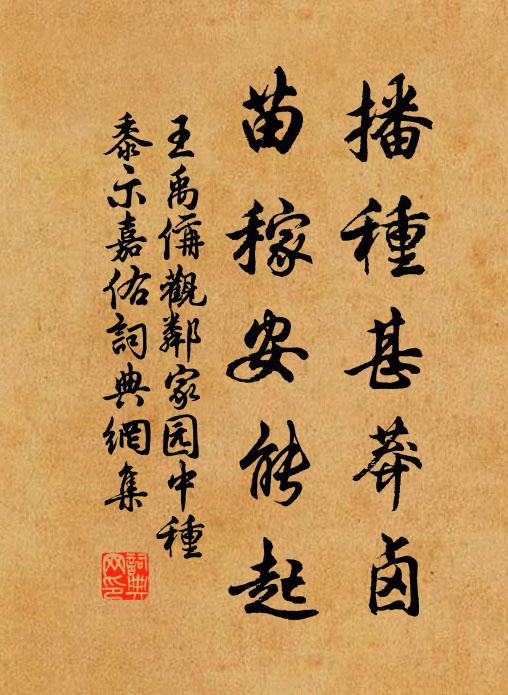 播種甚莽卤
苗稼安能起
王禹偁觀鄰家园中種
黍示嘉佑詞典網集
詞典网印